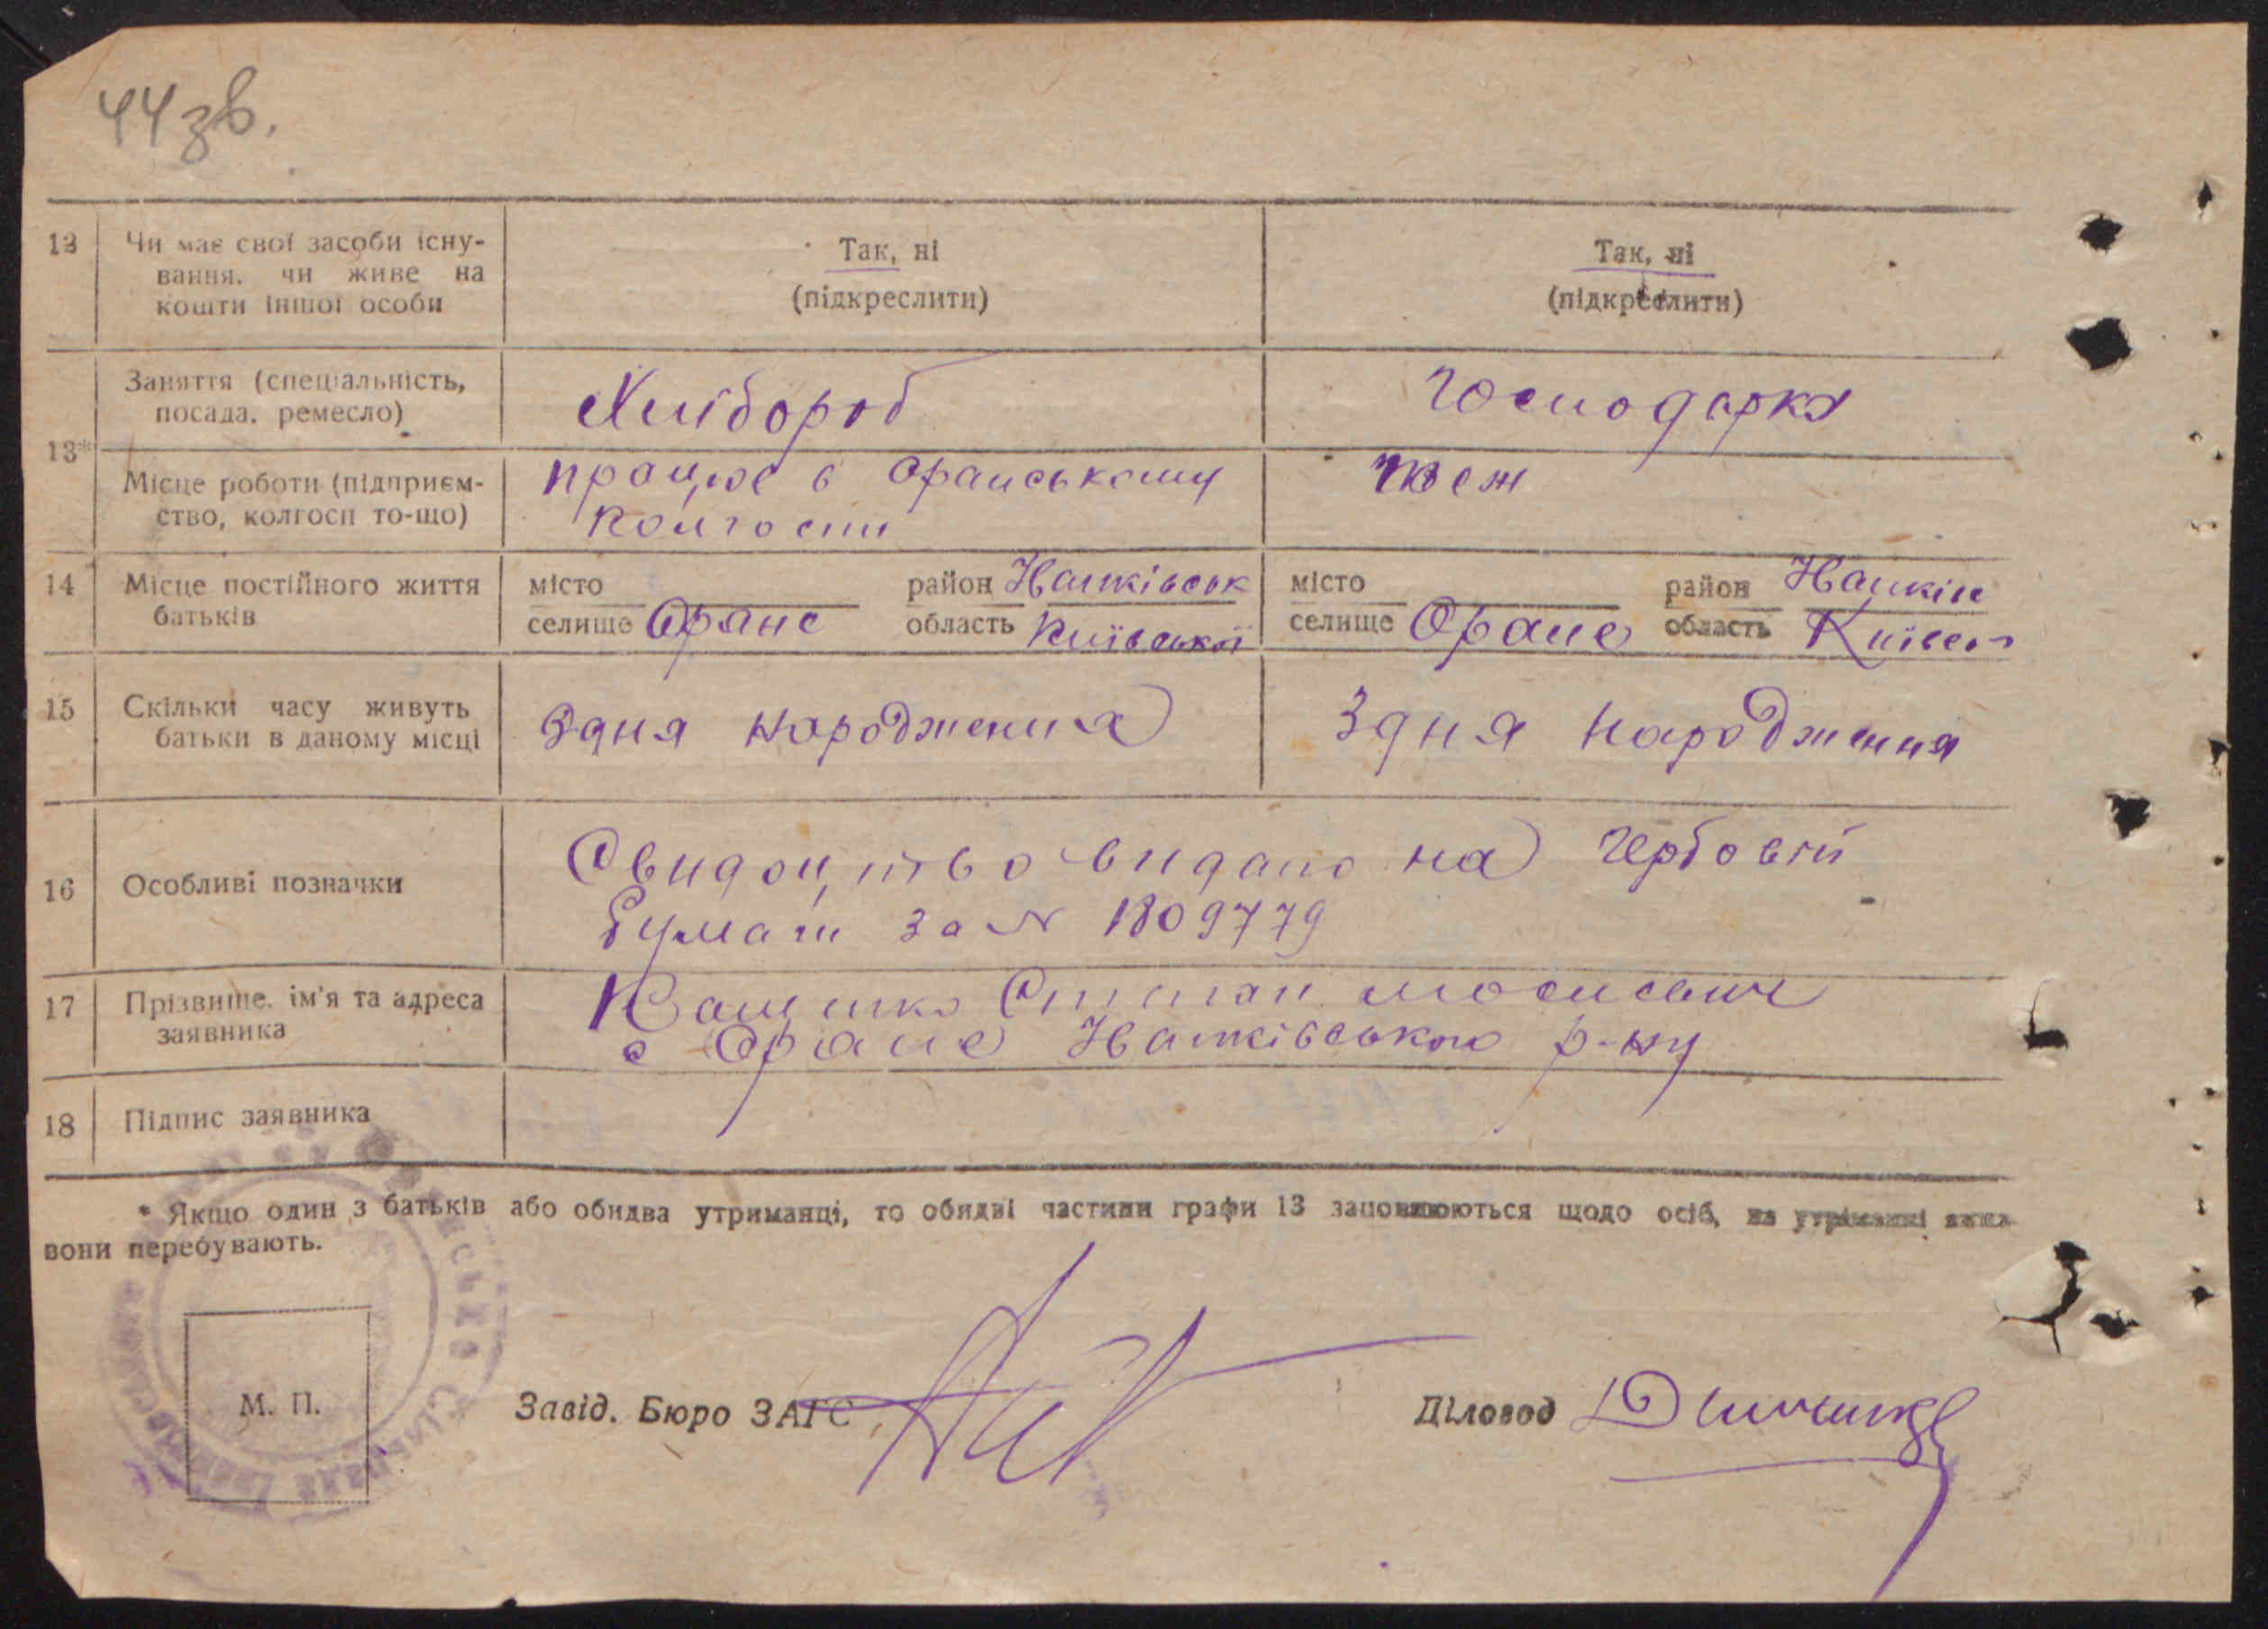 44 зв.
13 Чи має свої засоби існу-
вання, чи живе на
кошти іншої особи
Так, ні
(підкреслити)
Так, ні
(підкреслити)
13*
Заняття (спеціальність,
посада, ремесло)
Хлібороб
Господарка
Місце роботи (підприєм-
ство, колгосп то-що)
працює в Оранському
колгоспі
теж
14 Місце постійного життя
батьків
місто
селище Оране
район
область Київської
місто
селище Оране
район
область
15 Скільки часу живуть
батьки в даному місці
З дня народження
З дня народження
16 Особливі позначки
Свидоцтво видано на гербовій
бумазі за № 1809779
17 Прізвище, ім'я та адреса
заявника
с Оране р-ну
18 Підпис заявника
* Якщо один з батьків або обидва утриманці, то обидві частини графи 13 заповнюються щодо осіб, на утриманні яких
вони перебувають.
М. П.
Завід. Бюро ЗАГС
Діловод